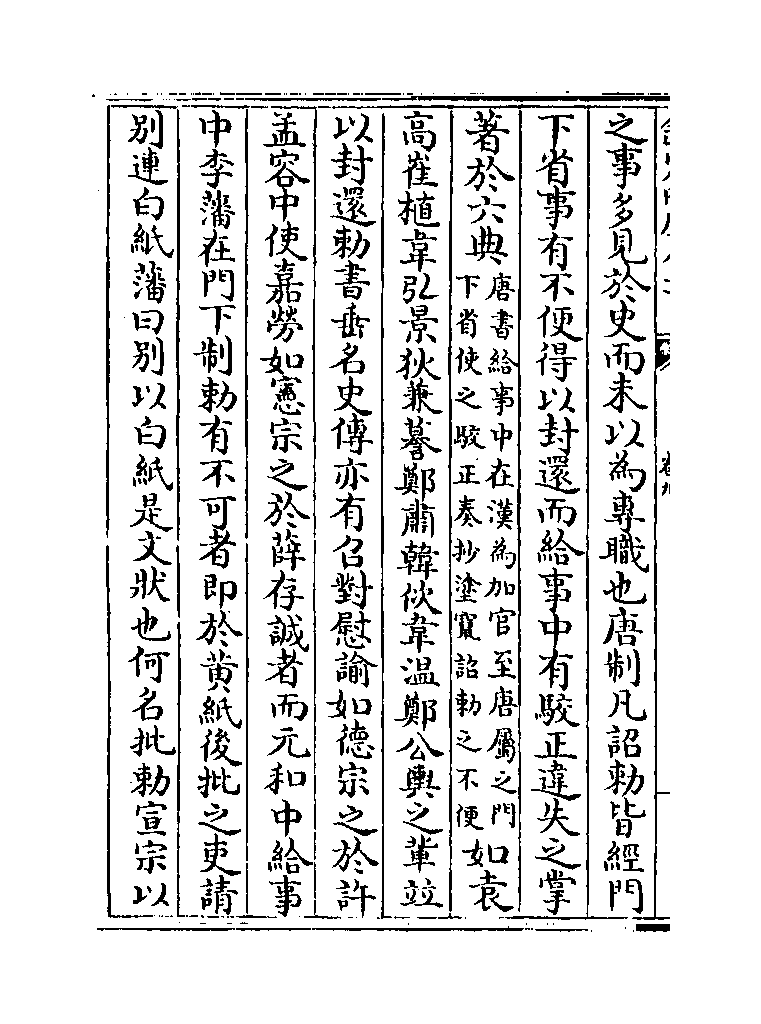 之事多見於史而未以為專職也唐制凡詔勅皆經門
下省事有不便得以封還而給事中有駮正違失之掌
著於六典唐書給事中在漢為加官至唐屬之門
下省使之駮正奏抄塗竄詔勅之不便如袁
高崔植韋弘景狄兼謩鄭肅韓佽韋温鄭公輿之輩竝
以封還勅書垂名史傳亦有召對慰諭如德宗之於許
孟容中使嘉勞如憲宗之於薛存誠者而元和中給事
中李藩在門下制勅有不可者即於黄紙後批之吏請
别連白紙藩曰别以白紙是文狀也何名批勅宣宗以